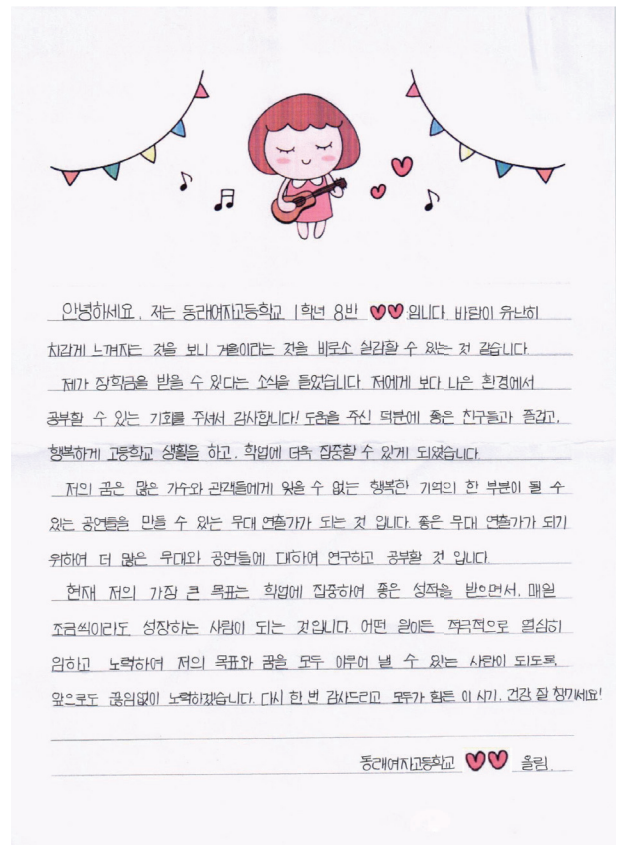 안녕하세요, 저는 동래여자고등학교 1학년 8반 입니다. 바람이 유난히
차갑게 느껴지는 것을 보니 겨울이라는 것을 비로소 실감할 수 있는 것 같습니다.
제가 장학금을 받을 수 있다는 소식을 들었습니다. 저에게 보다 나은 환경에서
공부할 수 있는 기회를 주셔서 감사합니다! 도움을 주신 덕분에 좋은 친구들과 즐겁고,
행복하게 고등학교 생활을 하고, 학업에 더욱 집중할 수 있게 되었습니다.
저의 꿈은 많은 가수와 관객들에게 잊을 수 없는 행복한 기억의 한 부분이 될 수
있는 공연들을 만들 수 있는 무대 연출가가 되는 것 입니다. 좋은 무대 연출가가 되기
위하여 더 많은 무대와 공연들에 대하여 연구하고 공부할 것 입니다.
현재 저의 가장 큰 목표는 학업에 집중하여 좋은 성적을 받으면서, 매일
조금씩이라도 성장하는 사람이 되는 것입니다. 어떤 일이든 적극적으로 열심히
임하고 노력하여 저의 목표와 꿈을 모두 이루어 낼 수 있는 사람이 되도록
앞으로도 끊임없이 노력하겠습니다. 다시 한 번 감사드리고 모두가 힘든 이 시기, 건강 잘 챙기세요!
동래여자고등학교 올림.